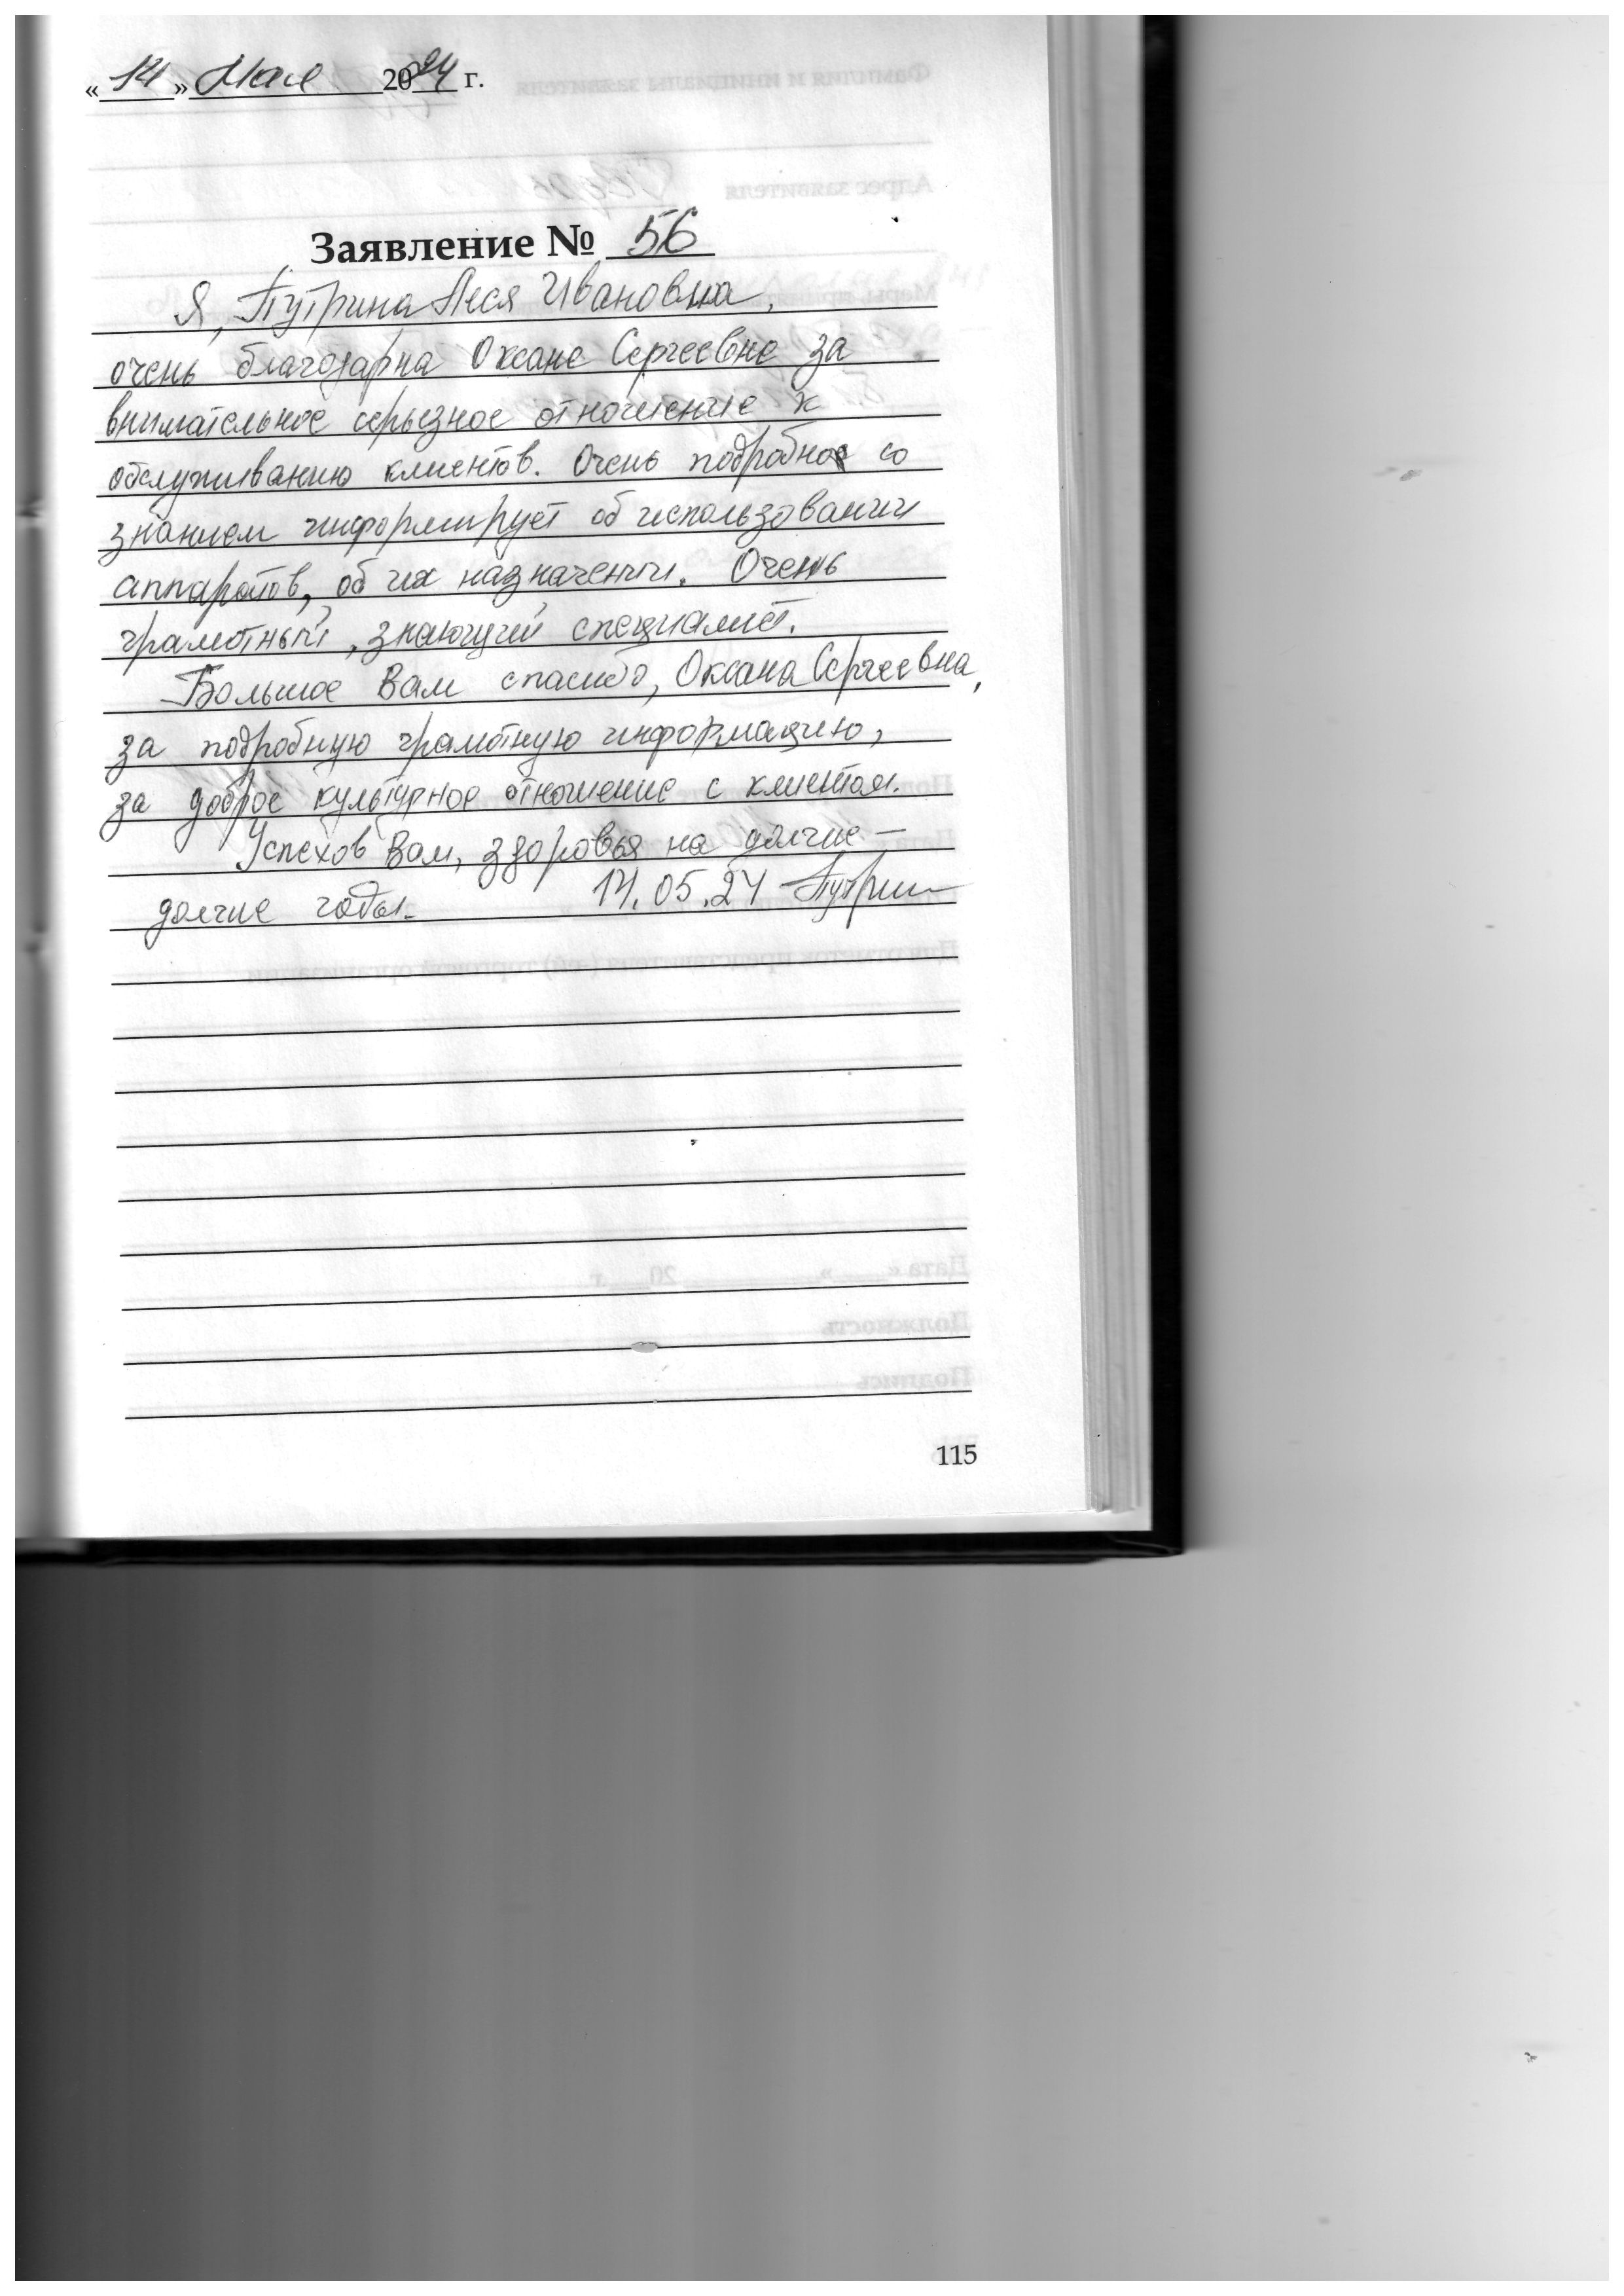 «14» Мая 2024 г.
Заявление № 56
Я, Путрина Леся Ивановна,
очень благодарна Оксане Сергеевне за
внимательное серьезное отношение к
обслуживанию клиентов. Очень подробно со
знанием информирует об использовании
аппаратов, об их назначении. Очень
грамотный, знающий специалист.
Большое Вам спасибо, Оксана Сергеевна,
за подробную грамотную информацию,
за доброе культурное отношение с клиентом.
Успехов Вам, здоровья на долгие –
долгие годы. 14.05.24 Путрин
115